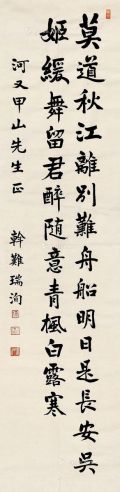 莫道秋江離別難舟船明日是長安吳
姬緩舞留君醉隨意青楓白露寒
河又甲山先生正
幹難瑞洵